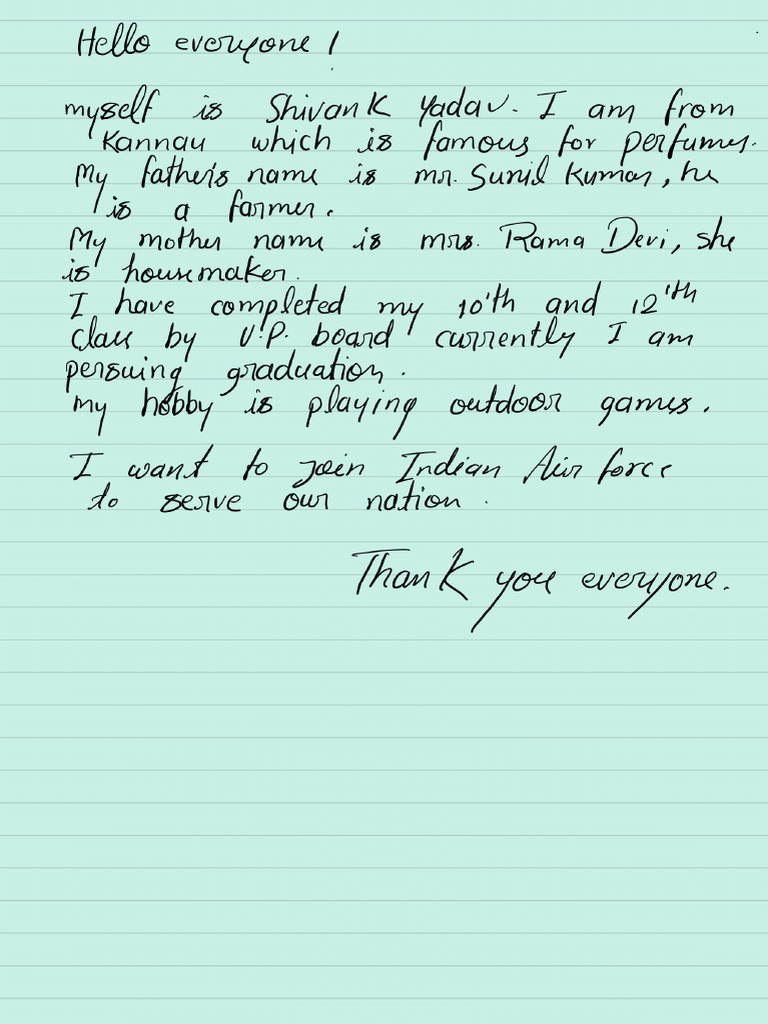 Hello everyone!
myself is Shivank Yadav. I am from
Kannau which is famous for perfumes.
My father's name is mr. Sunil Kumar, he
is a farmer.
My mother name is mrs. Rama Devi, she
is housemaker.
I have completed my 10'th and 12'th
class by U.P. board currently I am
persuing graduation.
my hobby is playing outdoor games.
I want to join Indian Air force
to serve our nation.
Thank you everyone.